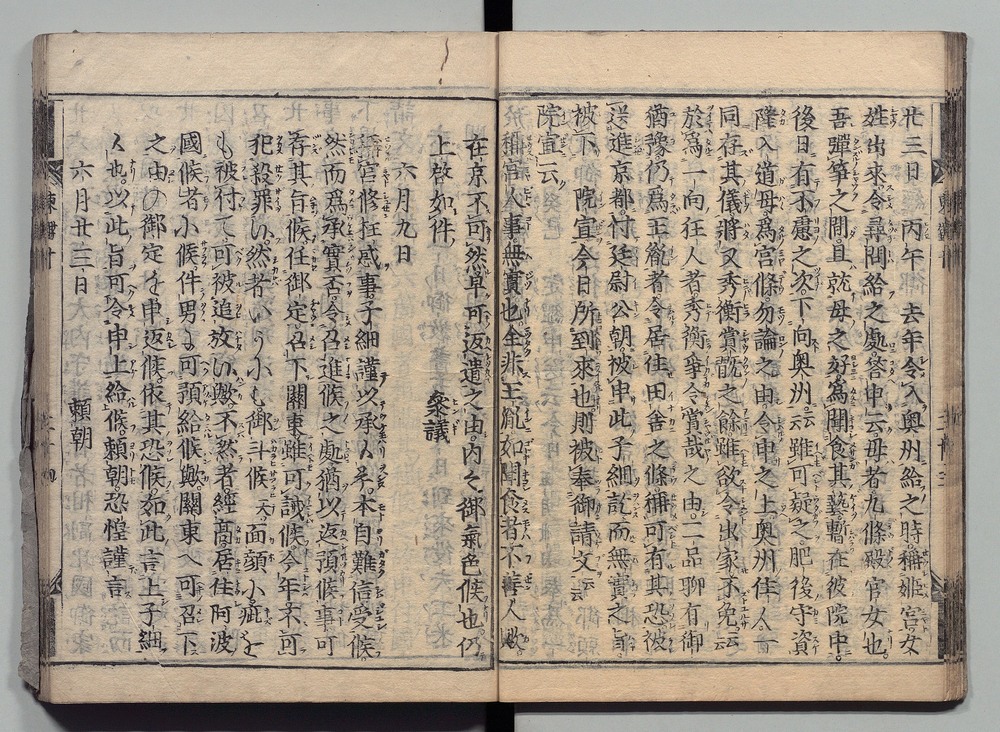 廿三日丙午去年令入奥州給之時稱姫宮女
姓出來令尋問給之處答申云母者九條殿官女也
吾彈箏之間且就母之好爲聞食其藝暫在彼院中
後日有不慮之次下向奥州云云雖可疑之肥後守資
隆入道母爲宮條勿論之由令申之上奥州住人一
同存其儀將又秀衡賞翫之餘雖欲令出家不免云云
於爲一向狂人者秀衡爭令賞哉之由二品聊有御
猶豫仍爲王胤者令居住田舎之條稱可有其恐被
送進京都付廷尉公朝被申此子細訖而無實之旨
被下 院宣今日所到來也則被奉御請文云云
院宣云
稱宮人事無實也全非王胤如聞食者不善人歟
在京不可然早可返遣之由内々御氣色候也仍
上啓如件
六月九日 衆議
宮修狂惑事子細謹以承候了本自難信受候
然而爲承實否令召進候之處猶以返預候事可
存其旨候任御定召下關東雖可誡候今年不可
犯殺罪候然者小御斗候天面顔小疵を
も被付天可被追放候歟不然者經高居住阿波
國候者小候件男可預給候歟關東可召下
之由の御定を申返候依其恐候如此言上子細
候也以此旨可令申上給候頼朝恐惶謹言
六月廿三日 頼朝